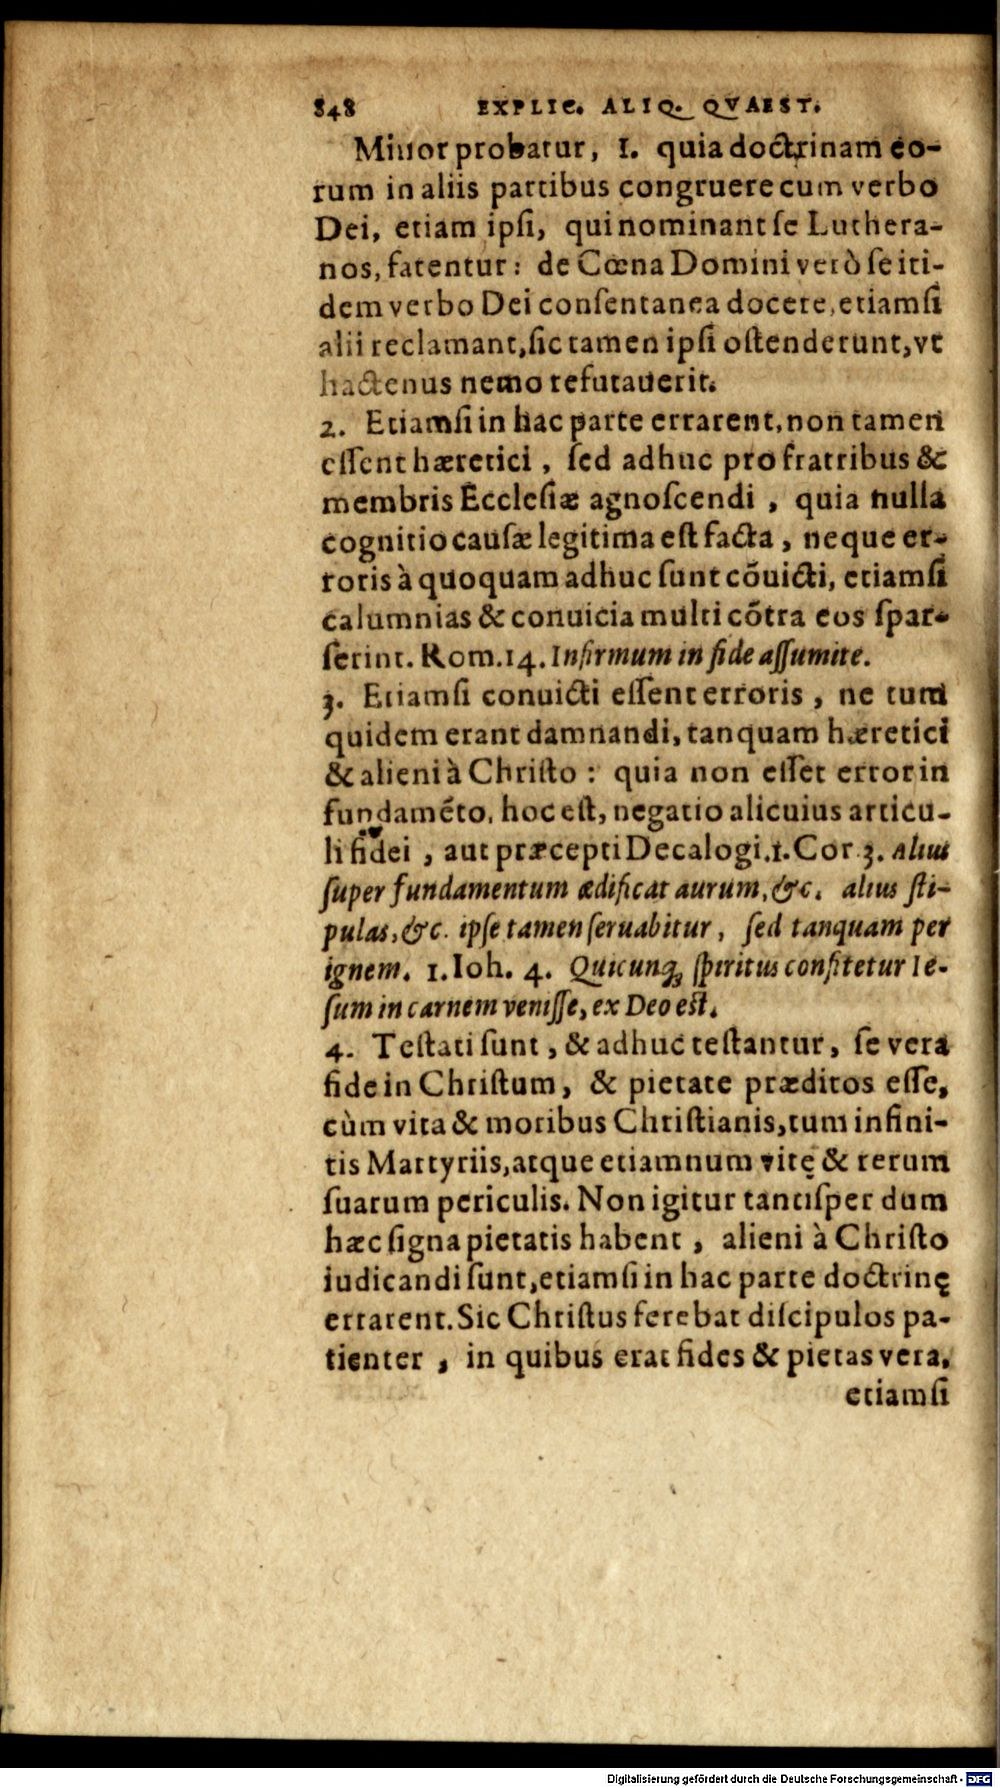 848 EXPLIC. ALIQ. QVAEST.
Minor probatur, 1. quia doctrinam eo-
rum in aliis partibus congruere cum verbo
Dei, etiam ipſi, qui nominant ſe Luthera-
nos, fatentur: de Cœna Domini verò ſe iti-
dem verbo Dei conſentanea docere, etiamſi
alii reclamant, ſic tamen ipſi oſtenderunt, vt
hactenus nemo refutauerit.
2. Etiamſi in hac parte errarent, non tamen
eſſent hæretici, ſed adhuc pro fratribus &
membris Eccleſiæ agnoſcendi, quia nulla
cognitio cauſæ legitima eſt facta, neque er-
roris à quoquam adhuc ſunt cõuicti, etiamſi
calumnias & conuicia multi cõtra eos ſpar-
ſerint. Rom. 14. Infirmum in fide aſſumite.
3. Etiamſi conuicti eſſent erroris, ne tum
quidem erant damnandi, tanquam hæretici
& alieni à Chriſto: quia non eſſet error in
fundamẽto, hoc eſt, negatio alicuius articu-
li fidei, aut præcepti Decalogi. 1. Cor. 3. Alius
ſuper fundamentum ædificat aurum, &c. alius ſti-
pulas, &c. ipſe tamen ſeruabitur, ſed tanquam per
ignem. 1. Ioh. 4. Quicunq; ſpiritus confitetur Ie-
ſum in carnem veniſſe, ex Deo eſt.
4. Teſtati ſunt, & adhuc teſtantur, ſe vera
fide in Chriſtum, & pietate præditos eſſe,
cùm vita & moribus Chriſtianis, tum infini-
tis Martyriis, atque etiamnum vitę & rerum
ſuarum periculis. Non igitur tantiſper dum
hæc ſigna pietatis habent, alieni à Chriſto
iudicandi ſunt, etiamſi in hac parte doctrinę
errarent. Sic Chriſtus ferebat diſcipulos pa-
tienter, in quibus erat fides & pietas vera,
etiamſi
Digitalisierung gefördert durch die Deutsche Forschungsgemeinschaft - DFG